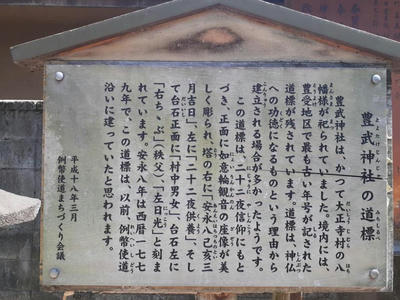 豊武神社の道標
豊武神社は、かつて大正寺村の八
幡様が祀られていました。境内には、
豊受地区で最も古い年号が記された
道標が残されています。道標は、神仏
への功徳になるものという理由から
建立される場合が多かったようです。
この道標は、二十二夜信仰にもと
づき、正面に如意輪観音の座像が美
しく彫られ、塔の右に「安永八己亥三
月吉日」左に「二十二夜供養」、そし
て台石正面に「村中男女」、台石左に
「右ちゝぶ」(秩父)「左日光」と刻ま
れています。安永八年は西暦一七七
九年で、この道標は、以前、例幣使道
沿いに建っていたと思われます。
平成十八年三月
例幣使道まちづくり会議